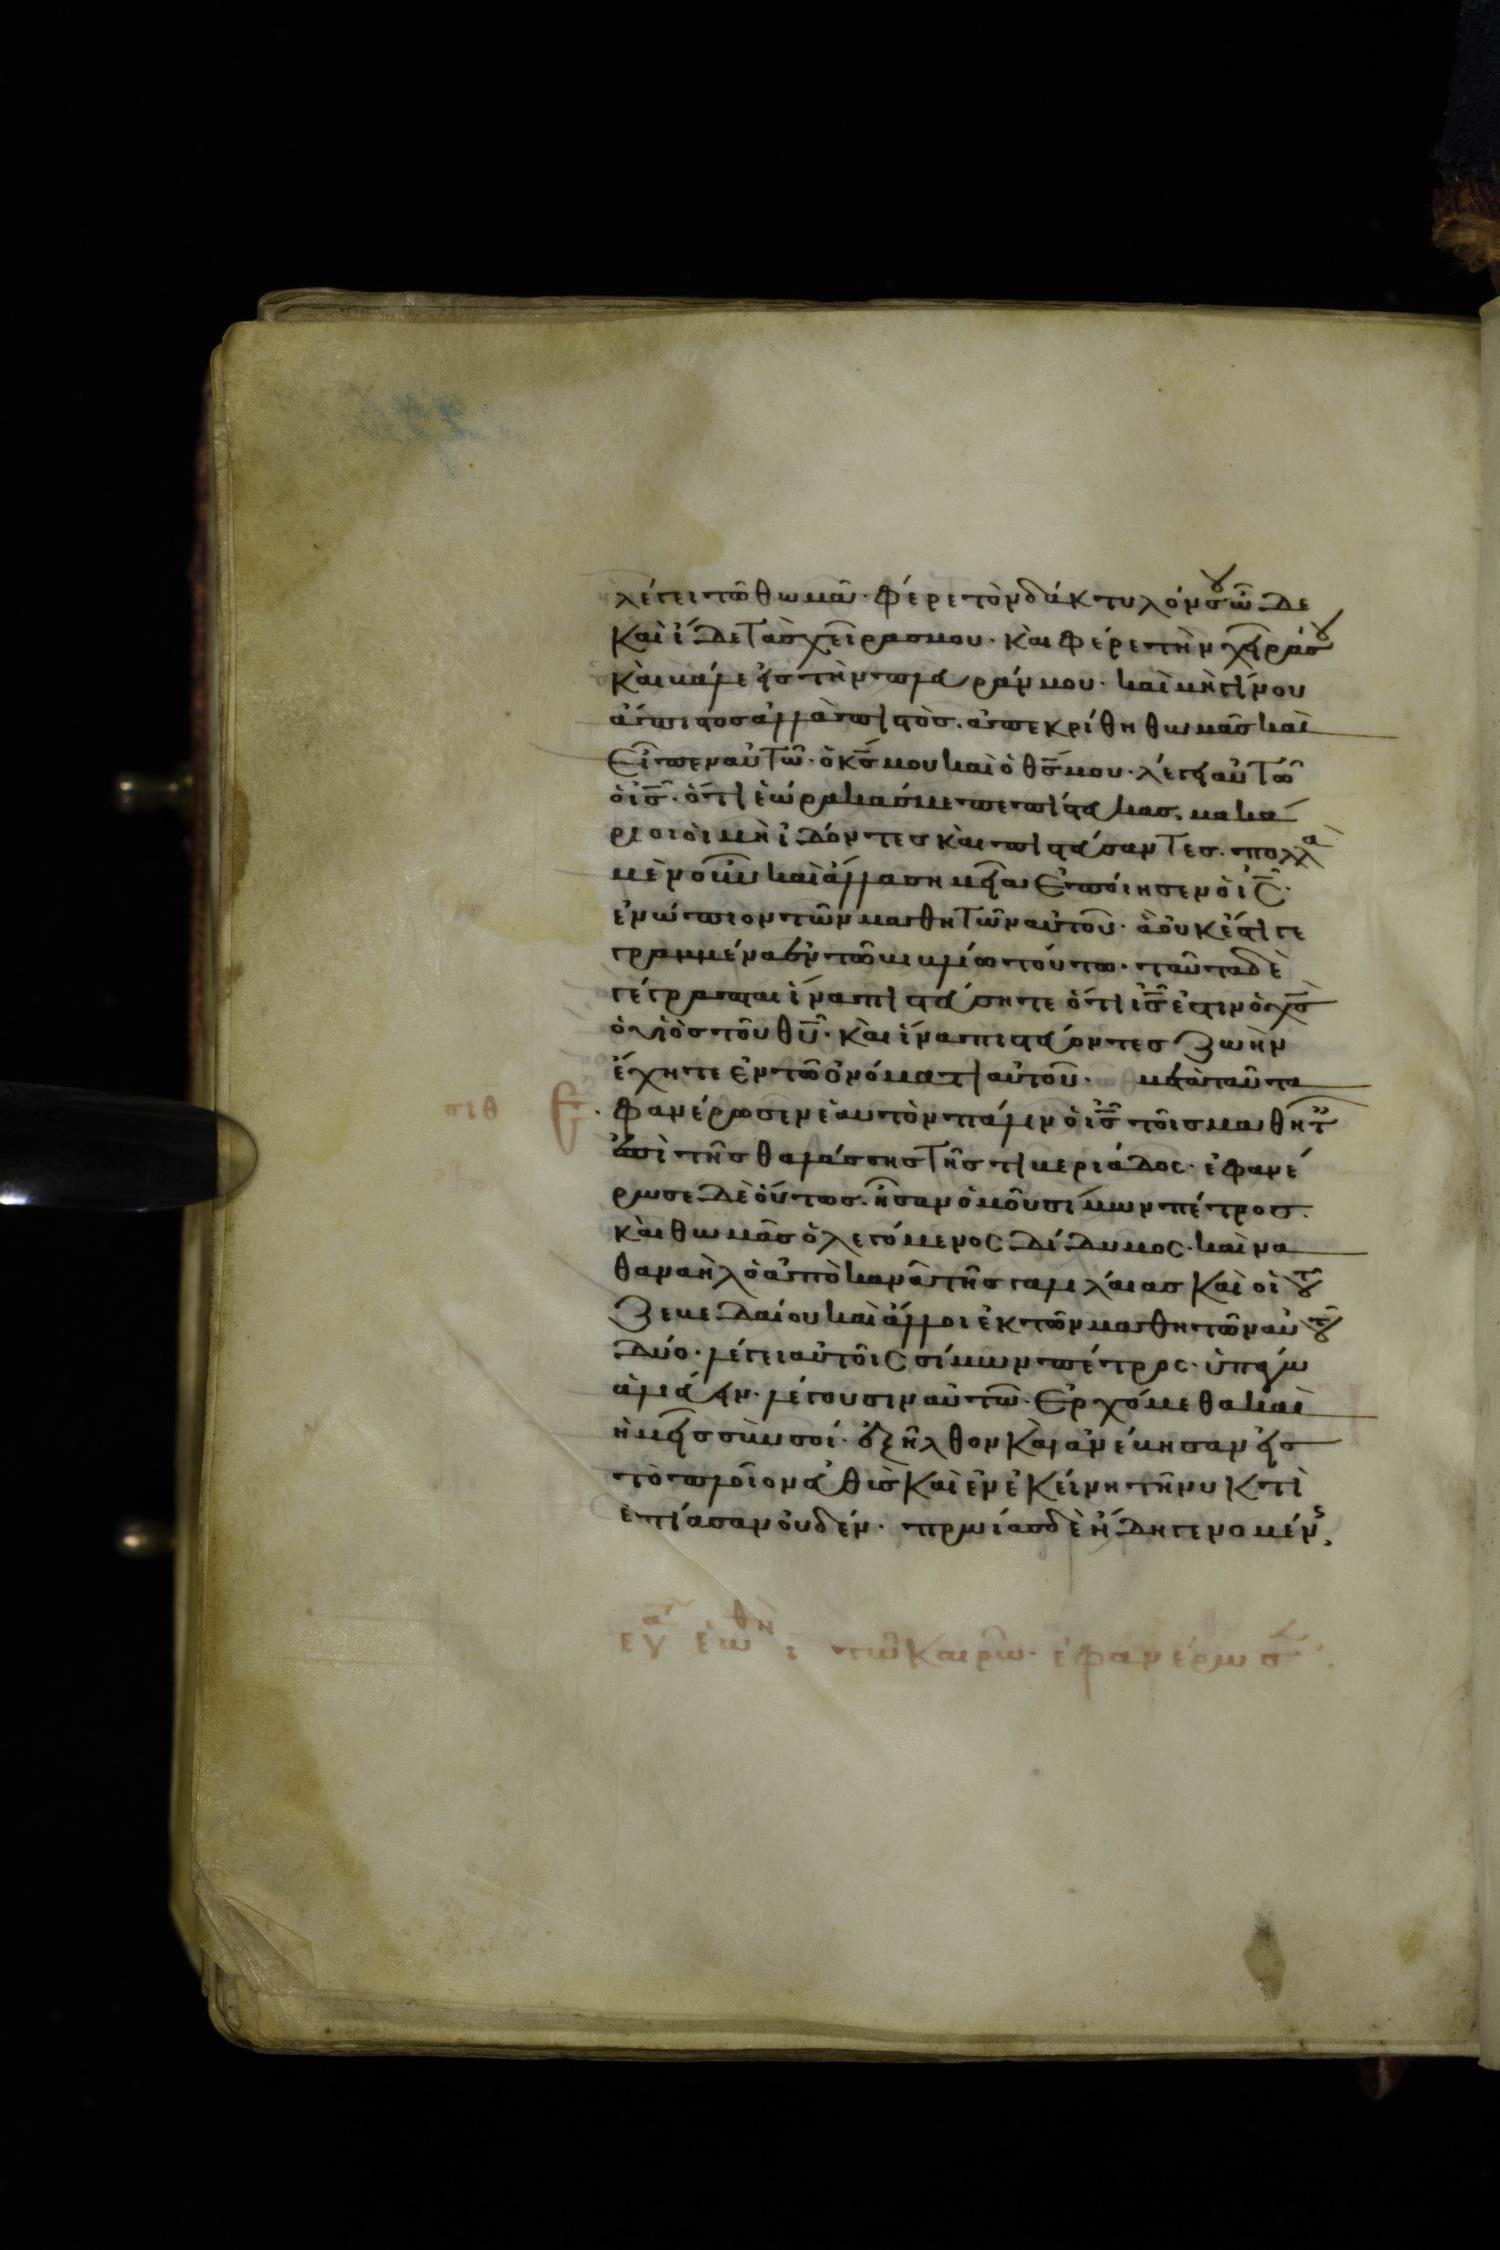 λέγει τῶ θωμᾶ· φέρε τὸν δάκτυλόν σου ὧδε
καὶ ἴδε τὰς χεῖρας μου· καὶ φέρε τὴν χεῖρά σου
καὶ βάλε εἰς τὴν πλευράν μου· καὶ μὴ γίνου
ἄπιστος ἀλλὰ πιστὸς. ἀπεκρίθη θωμᾶς καὶ
εἶπεν αὐτῶ· ὁ κς μου καὶ ὁ θς μου· λέγει αὐτῶ
ὁ ις· ὅτι ἑώρακάς με πεπίστευκας. μακά
ριοι οἱ μὴ ἰδόντες καὶ πιστεύσαντες. πολλὰ
μὲν οὖν καὶ ἄλλα σημεῖα ἐποίησεν ὁ ις·
ἐνώπιον τῶν μαθητῶν αὐτοῦ· ἃ οὐκ ἔστι γε
γραμμένα ἐν τῶ βιβλίω τούτω· ταῦτα δὲ
γέγραπται ἵνα πιστεύσητε ὅτι ις ἐστιν ὁ χς
ὁ υἱὸς τοῦ θυ· καὶ ἵνα πιστεύοντες ζωὴν
ἔχητε ἐν τῶ ὀνόματι αὐτοῦ· μετὰ ταῦτα
σιθ Ἐ·φανέρωσεν ἑαυτὸν πάλιν ὁ ις τοῖς μαθητ
ἐπὶ τῆς θαλάσσης τῆς τιβεριάδος· ἐφανέ
ρωσε δὲ οὕτως. ἦσαν ὁμοῦ σίμων πέτρος.
καὶ θωμᾶς ὁ λεγόμενος δίδυμος· καὶ να
θαναὴλ ὁ ἀπὸ κανᾶ τῆς γαλιλαίας καὶ οἱ τοῦ
ζεβεδαίου καὶ ἄλλοι ἐκ τῶν μαθητῶν αὐτοῦ
δύο· λέγει αὐτοῖς σίμων πέτρος· ὑπάγω
ἁλιεύειν· λέγουσιν αὐτῶ· ἐρχόμεθα καὶ
ἡμεῖς σὺν σοί· ἐξῆλθον καὶ ἀνέβησαν εἰς
τὸ πλοῖον εὐθὺς καὶ ἐν ἐκείνη τῆ νυκτὶ
ἐπίασαν οὐδέν· πρωίας δὲ ἤδη γενομένης
ευα εωθη ι τῶ καιρῶ· ἐφανέρωσ